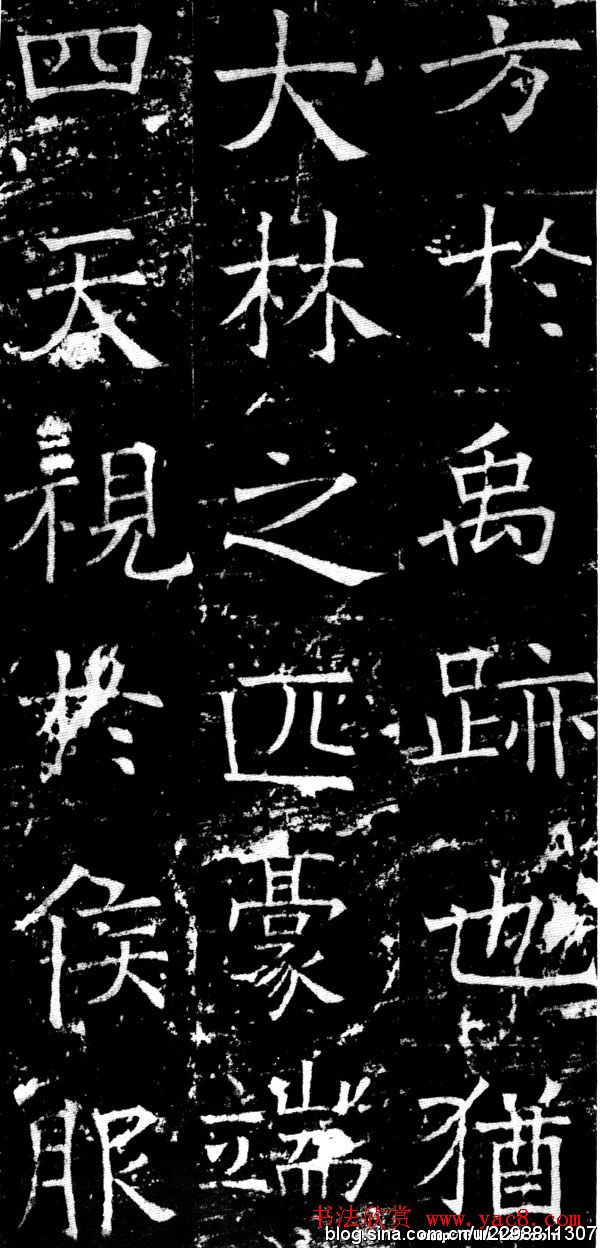 方於禹跡也猶
大林之匹豪端
四天視於侯服
书法欣赏 www.yac8.com
blog.sina.com.cn/u/2298811307